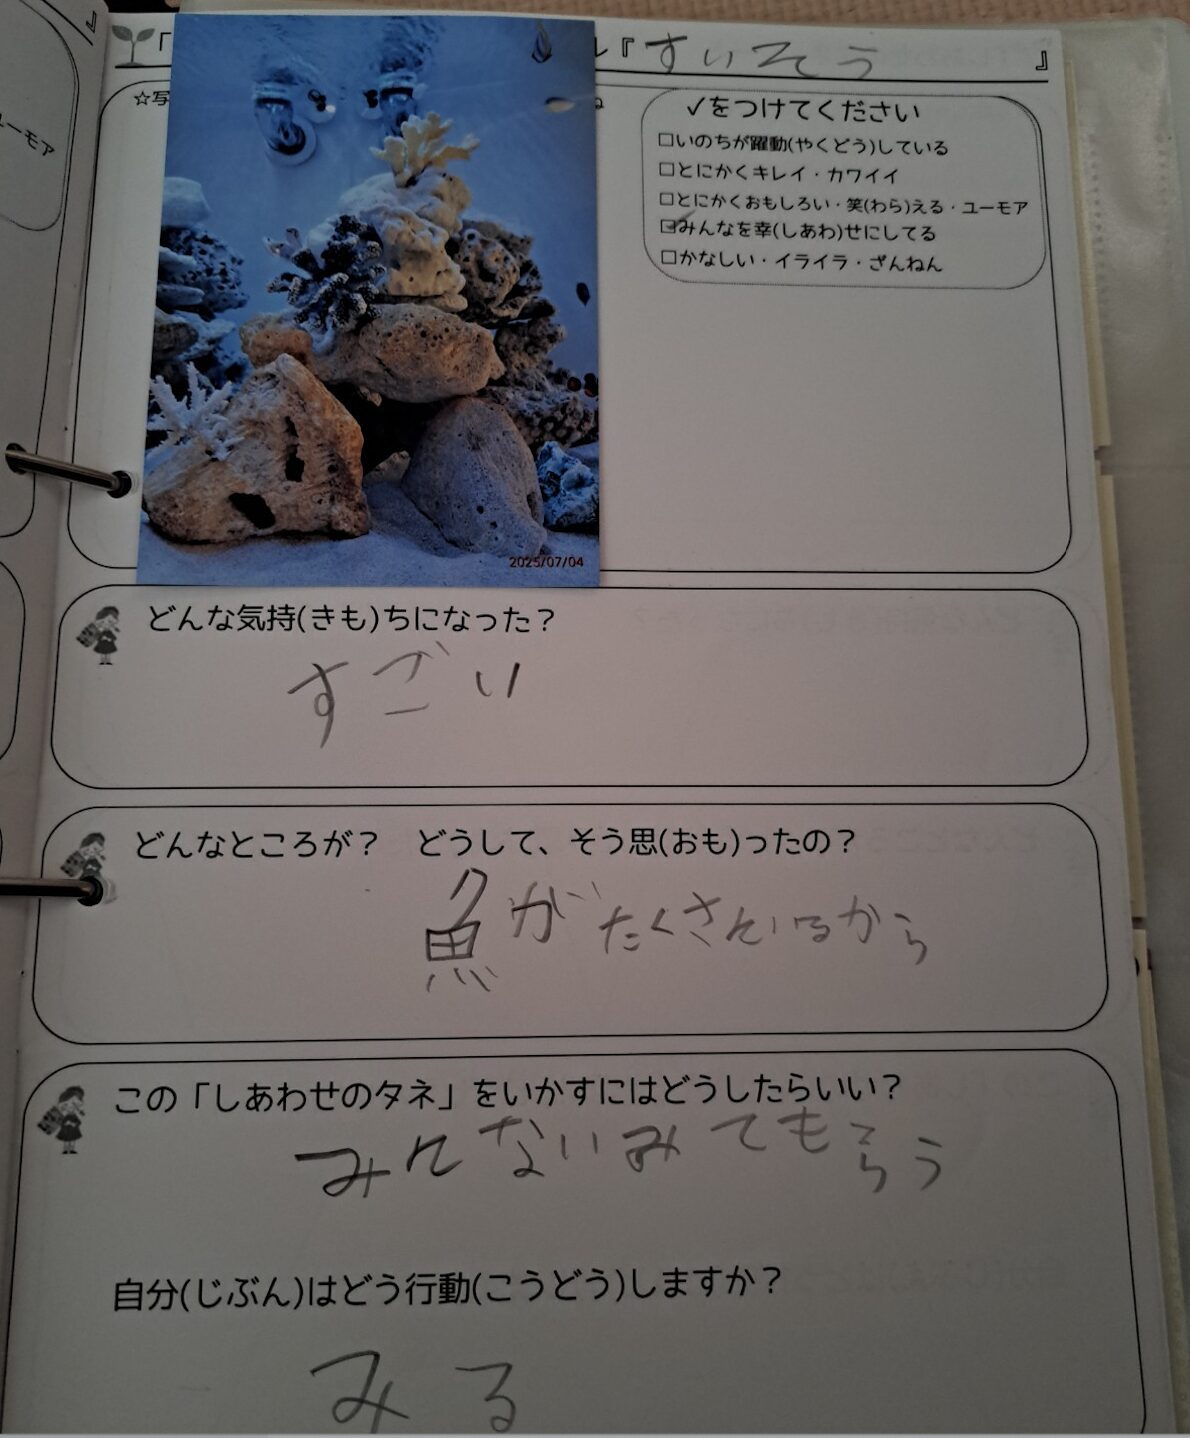 ユーモア
「
『すいそう』
☆写
✓をつけてください
□いのちが躍動(やくどう)している
□とにかくキレイ・カワイイ
□とにかくおもしろい・笑(わら)える・ユーモア
☑みんなを幸(しあわ)せにしてる
□かなしい・イライラ・ざんねん
2025/07/04
どんな気持(きも)ちになった？
すごい
どんなところが？　どうして、そう思(おも)ったの？
魚がたくさんいるから
この「しあわせのタネ」をいかすにはどうしたらいい？
みんないみてもらう
自分(じぶん)はどう行動(こうどう)しますか？
みる